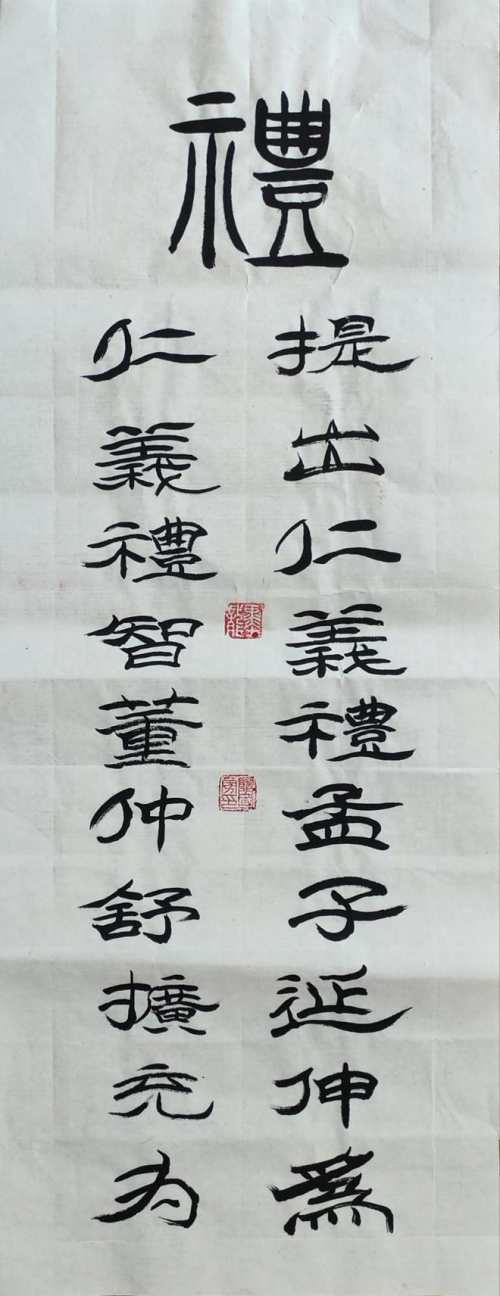 禮
提出仁義禮孟子延伸爲
仁義禮智董仲舒擴充为